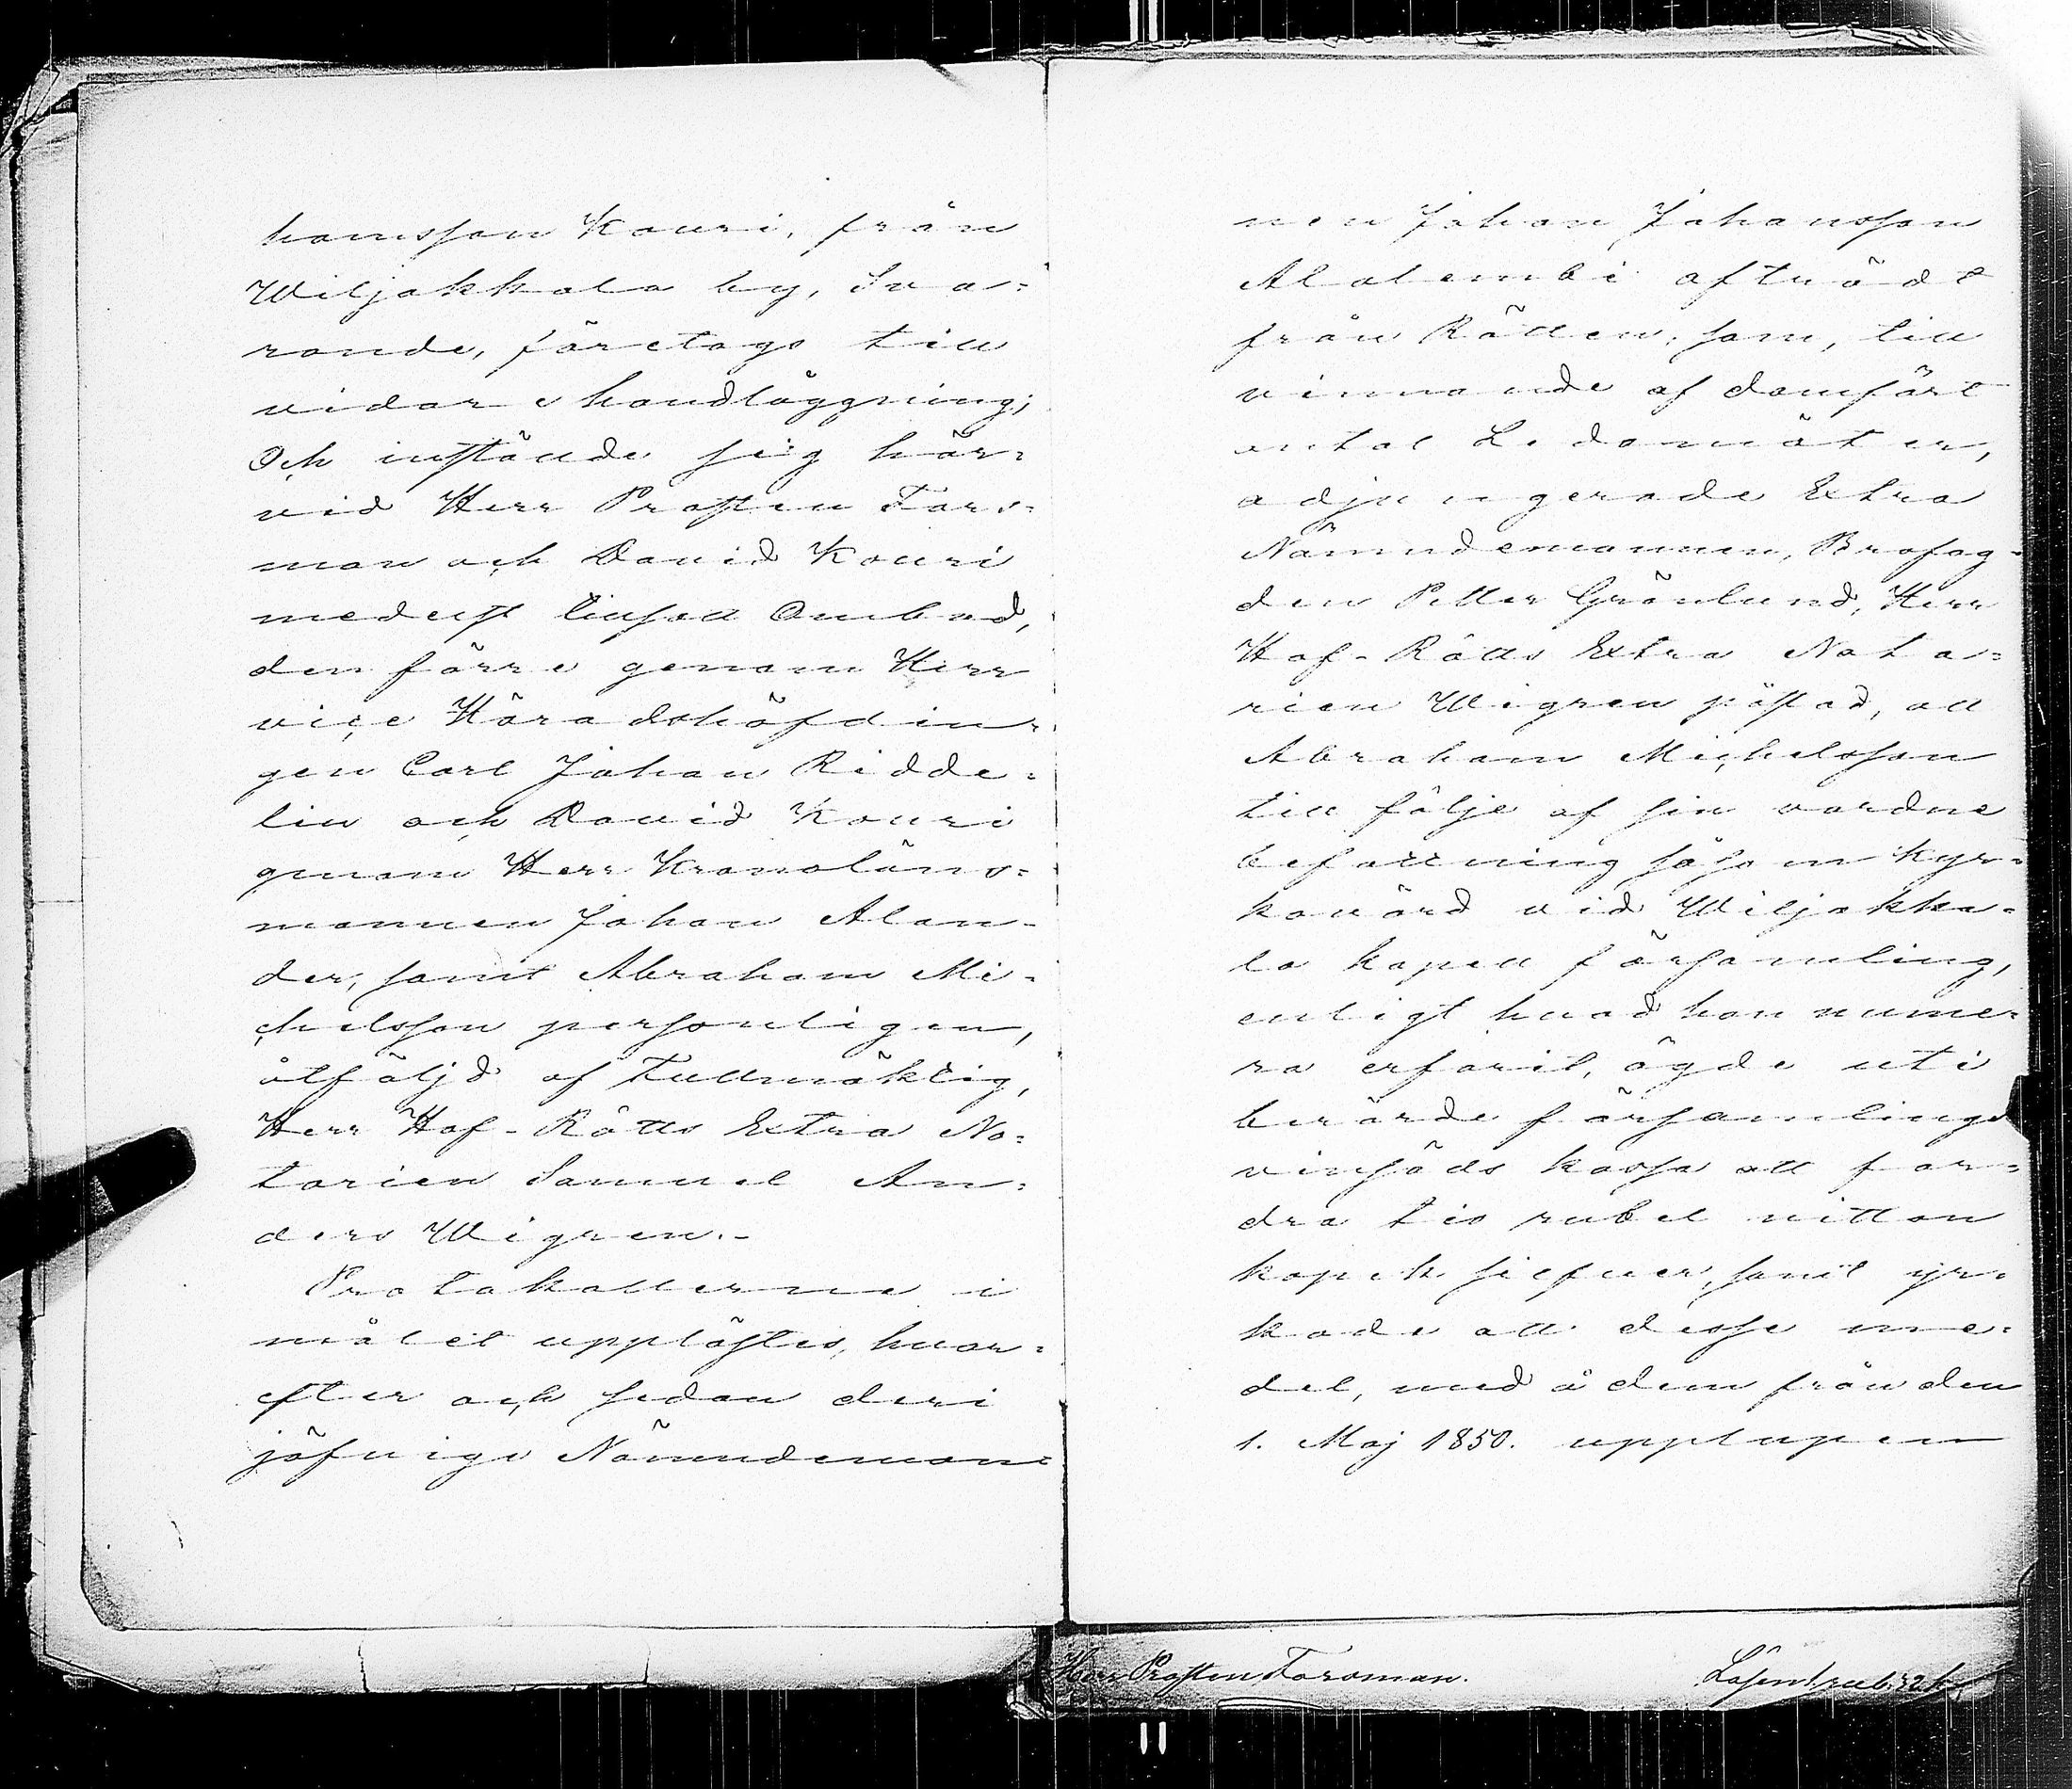 hansson Kouri, från
Wiljakkala by, Sva=
rande, företogs till
vidare handläggning;
Och instände sig här=
vid Herr Prosten Fors=
man och David Kouri
medelst linsedt Ombud,
den förre genom Herr
vice Häradshöfdin=
gen Carl Johan Ridde=
lin och David Kouri
genom Herr Kronoläns=
mannen Johan Alan=
der, samt Abraham Mi=
chelsson personligen,
åtföljd af Fullmäktig,
Herr Hof-Rätts Extra No=
tarien Samuel An=
ders Wigren.-
Protokollerne i
målet upplästes, hvar=
efter och sedan deri
jäfvige Nämndeman=
nen Johan Johansson
Alalembi afträdt
från Rätten, som, till
vinnande af domfört
antal Ledamöter,
adjungerade Extra
Nämndemannen, Brofog=
den Petter Grönlund, Herr
Hof-Rätts Extra Nota=
rien Wigren påstod, att
Abraham Michelsson
till följe af sin vordne
befattning såsom Kyr=
kovärd vid Wiljakka=
la kapell församling,
enligt hvad han nume=
ra erfarit, ägde uti
berörde församlings
vinsäds kassa att for=
dra tio rubel nitton
kopek silfver, samt yr=
kade att desse me=
del, med å dem från den
1. Maj 1850. upplupen
Herr Prosten Forsman.
Lösen 1 rub. 32 k.